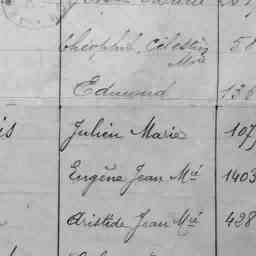 Théophile Célestin 58
Mie
Edmond 136
is Julien Marie 107
Eugène Jean Mie 1403
Aristide Jean Mie 428